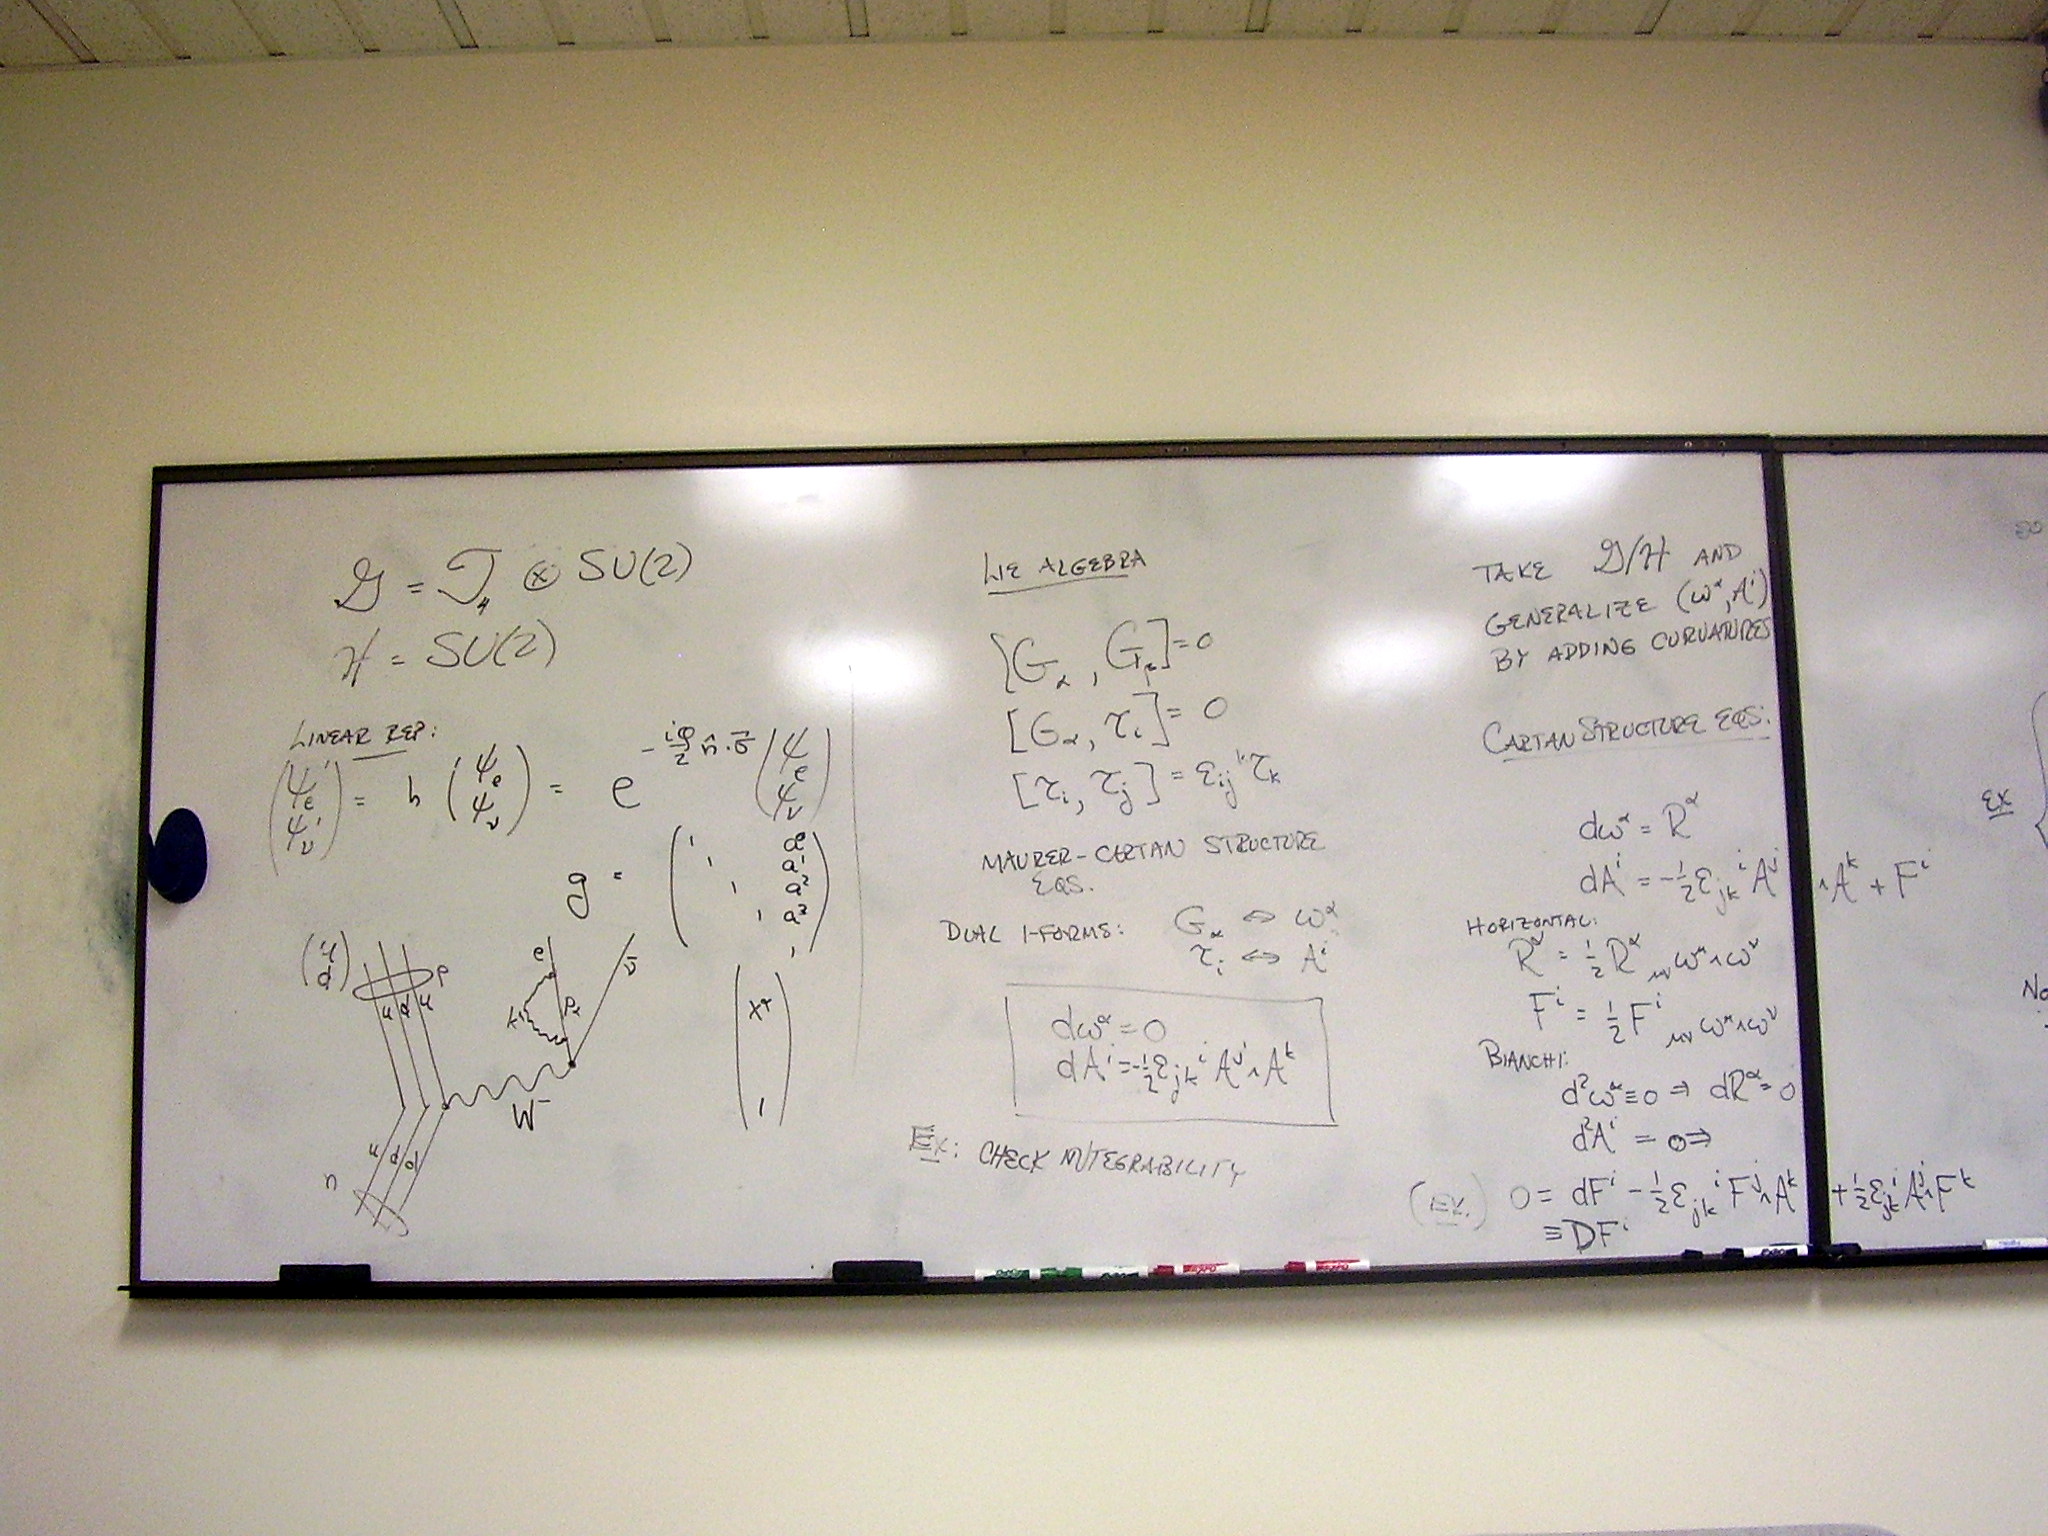 𝒢 = 𝒯₄ ⊗ SU(2)
ℋ = SU(2)
LINEAR REP:
(ψ'ₑ ψ'ᵥ) = h (ψₑ ψᵥ) = e^{-iφ/2 n̂·σ⃗} (ψₑ ψᵥ)
g = (1 1 1 1 a⁰ a¹ a² a³ 1)
(u d)
p
u d u
e
ν̄
k¹
W⁻
(x^α 1)
u d d
n
LIE ALGEBRA
[G_α, G_β] = 0
[G_α, τ_i] = 0
[τ_i, τ_j] = ε_ij^k τ_k
MAURER-CARTAN STRUCTURE
EQS.
DUAL 1-FORMS: G_α ⇔ ω^α
τ_i ⇔ A^i
dω^α = 0
dA^i = -½ ε_jk^i A^j ∧ A^k
EX: CHECK INTEGRABILITY
TAKE 𝒢/ℋ AND
GENERALIZE (ω^α, A^i)
BY ADDING CURVATURES
CARTAN STRUCTURE EQS:
dω^α = R^α
dA^i = -½ ε_jk^i A^j ∧ A^k + F^i
HORIZONTAL:
R^α = ½ R^α_μν ω^μ ∧ ω^ν
F^i = ½ F^i_μν ω^μ ∧ ω^ν
BIANCHI:
d²ω^α ≡ 0 ⇒ dR^α = 0
d²A^i = 0 ⇒
(EX.) 0 = dF^i - ½ ε_jk^i F^j ∧ A^k + ½ ε_jk^i A^j ∧ F^k
≡ DF^i
EX